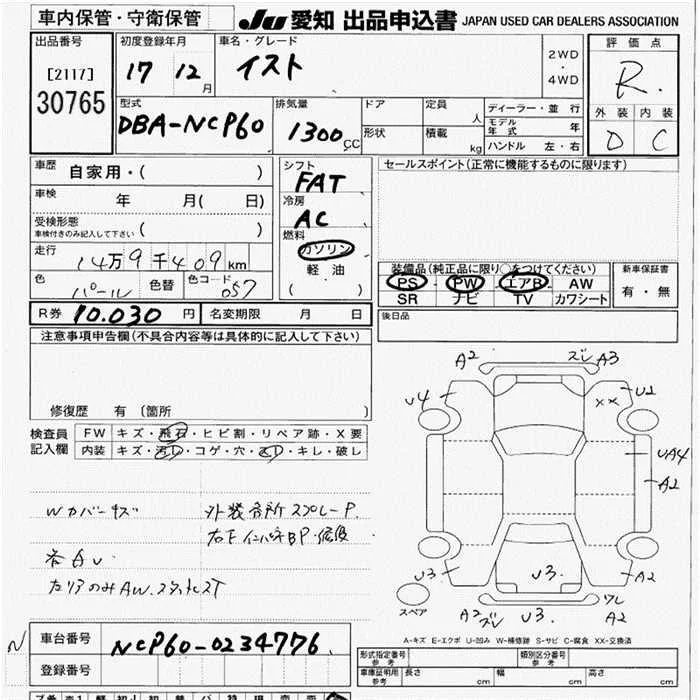 車内保管・守衛保管
JU 愛知 出品申込書 JAPAN USED CAR DEALERS ASSOCIATION
出品番号
[2117]
30765
初度登録年月
17 12 月
車名・グレード
イスト
2WD
・
4WD
評価点
R.
外装 内装
D C
型式
DBA-NCP60
排気量
1300 CC
ドア
形状
定員 人
積載 kg
ディーラー・並行
モデル年式 年
ハンドル 左・右
車歴 自家用・( )
車検 年 月( 日)
受検形態
車検付きのみ記入して下さい ( )
走行 14万9千409km
色 パール 色替 色コード 057
シフト
FAT
冷房
AC
燃料
ガソリン
軽油
( )
セールスポイント(正常に機能するものに限ります)
装備品(純正品に限り○をつけてください)
PS PW エアB AW
SR ナビ TV カワシート
新車保証書
有・無
R券 10.030 円 名変期限 月 日
後日品
注意事項申告欄(不具合内容等は具体的に記入して下さい)
修復歴 有 (箇所 )
検査員
記入欄
FW キズ・飛石・ヒビ割・リペア跡・X要
内装 キズ・汚レ・コゲ・穴・スレ・キレ・破レ
Wカバーキズ
外装各所スプレーP.
右F インパネBP・修復
各凸U
カリアのみAW.スタッドレスT
A2 ズレ A3
U4 XX U2
UA4
A2
U3 U3. A2
スペア
A2 ズレ U3. ワレ A2
A-キズ E-エクボ U-凹み W-補修跡 S-サビ C-腐食 XX-交換済
N
車台番号 NCP60-0234776
登録番号
形式指定番号 参考
類別区分番号 参考
車庫証明用 参考 長さ cm 幅 cm 高さ cm